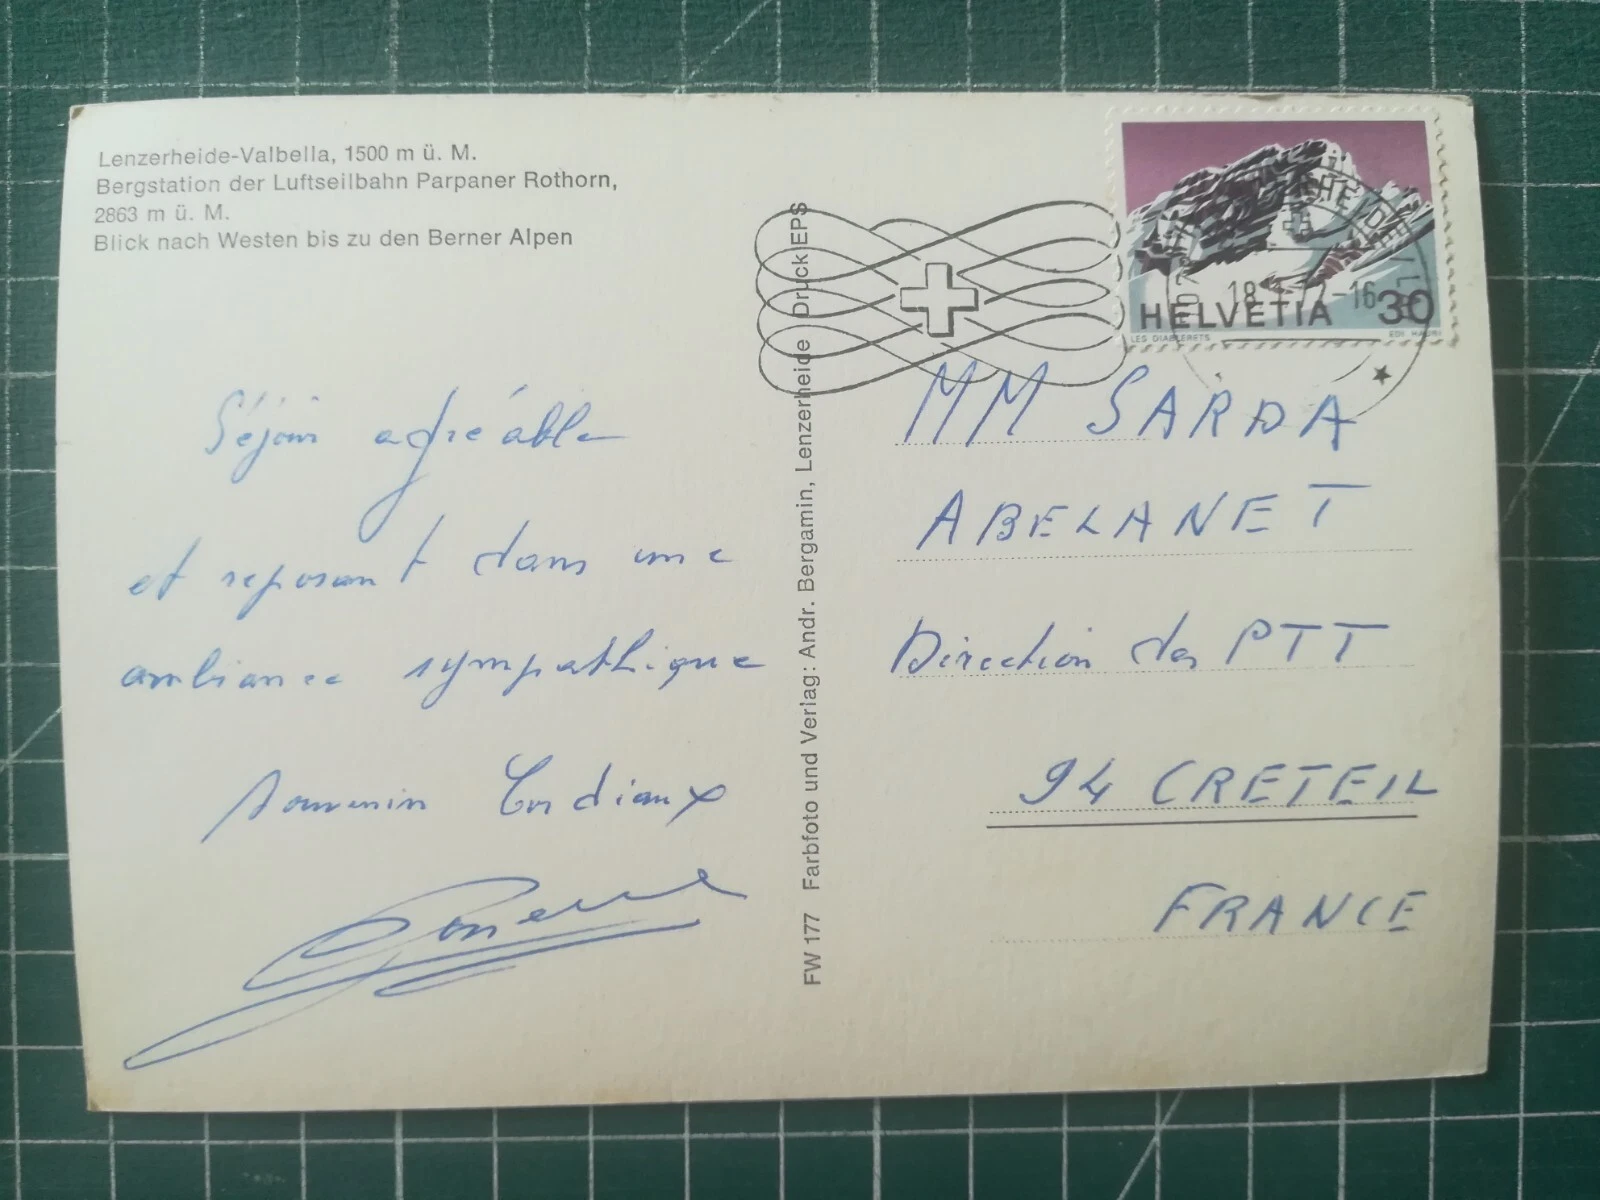 Lenzerheide-Valbella, 1500 m ü. M.
Bergstation der Luftseilbahn Parpaner Rothorn,
2863 m ü. M.
Blick nach Westen bis zu den Berner Alpen
Séjour agréable
et reposant dans une
ambiance sympathique
Souvenir Cordiaux
FW 177 Farbfoto und Verlag: Andr. Bergamin, Lenzerheide Druck EPS
HELVETIA 30
LES DIABLERETS
EDI HAURI
18
-16
MM SARDA
ABELANET
Direction des PTT
94 CRETEIL
FRANCE